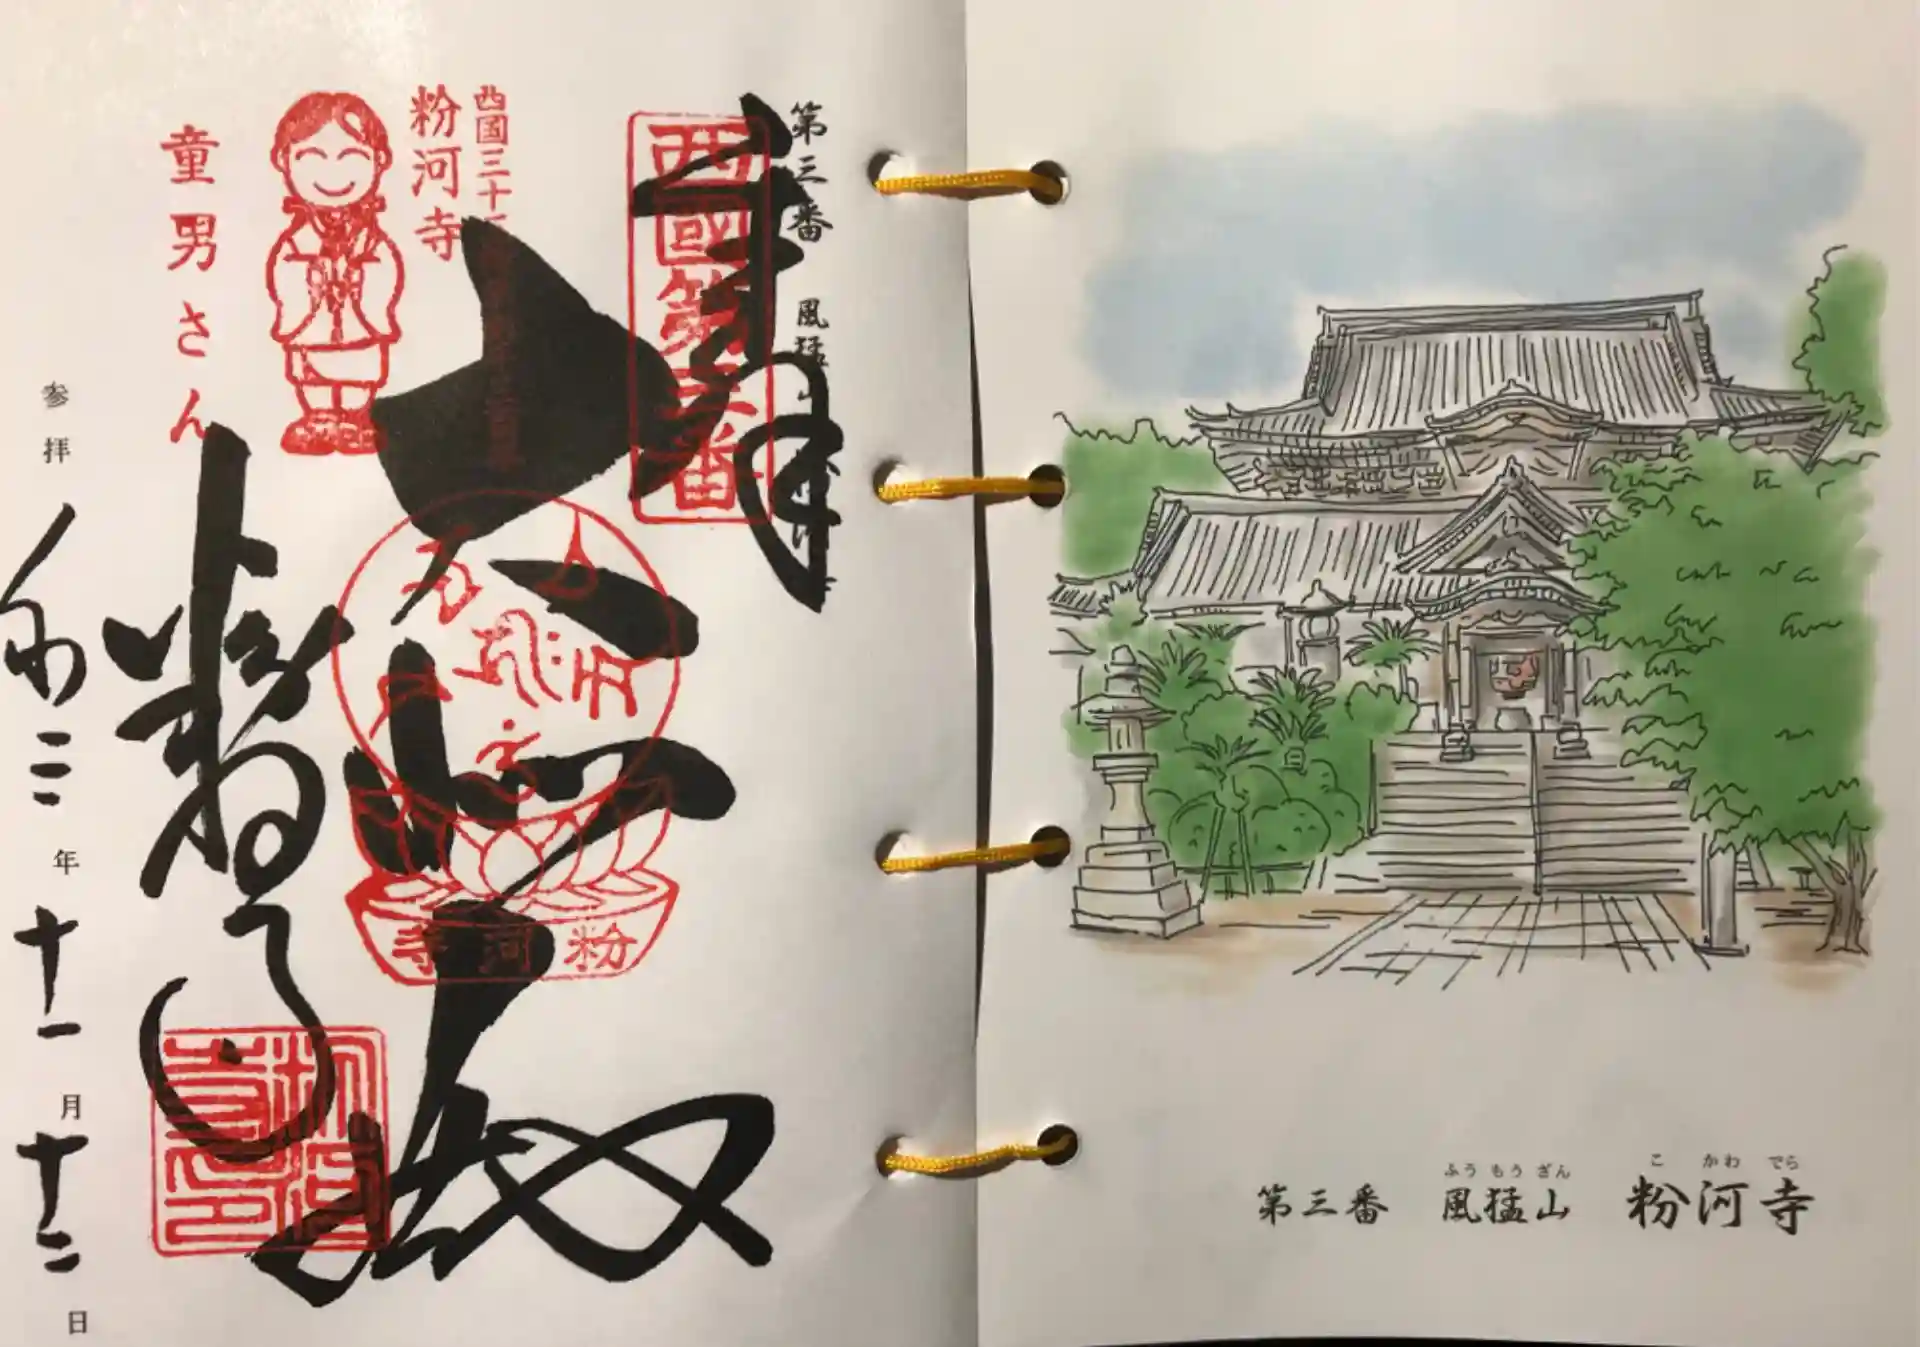 第三番 風猛山
奉拝
西國第三番
大悲殿
西国三十
粉河寺
童男さん
粉河寺
粉河寺
粉河寺印
参拝 令和三年十一月十二日
ふうもうざん こかわでら
第三番 風猛山 粉河寺